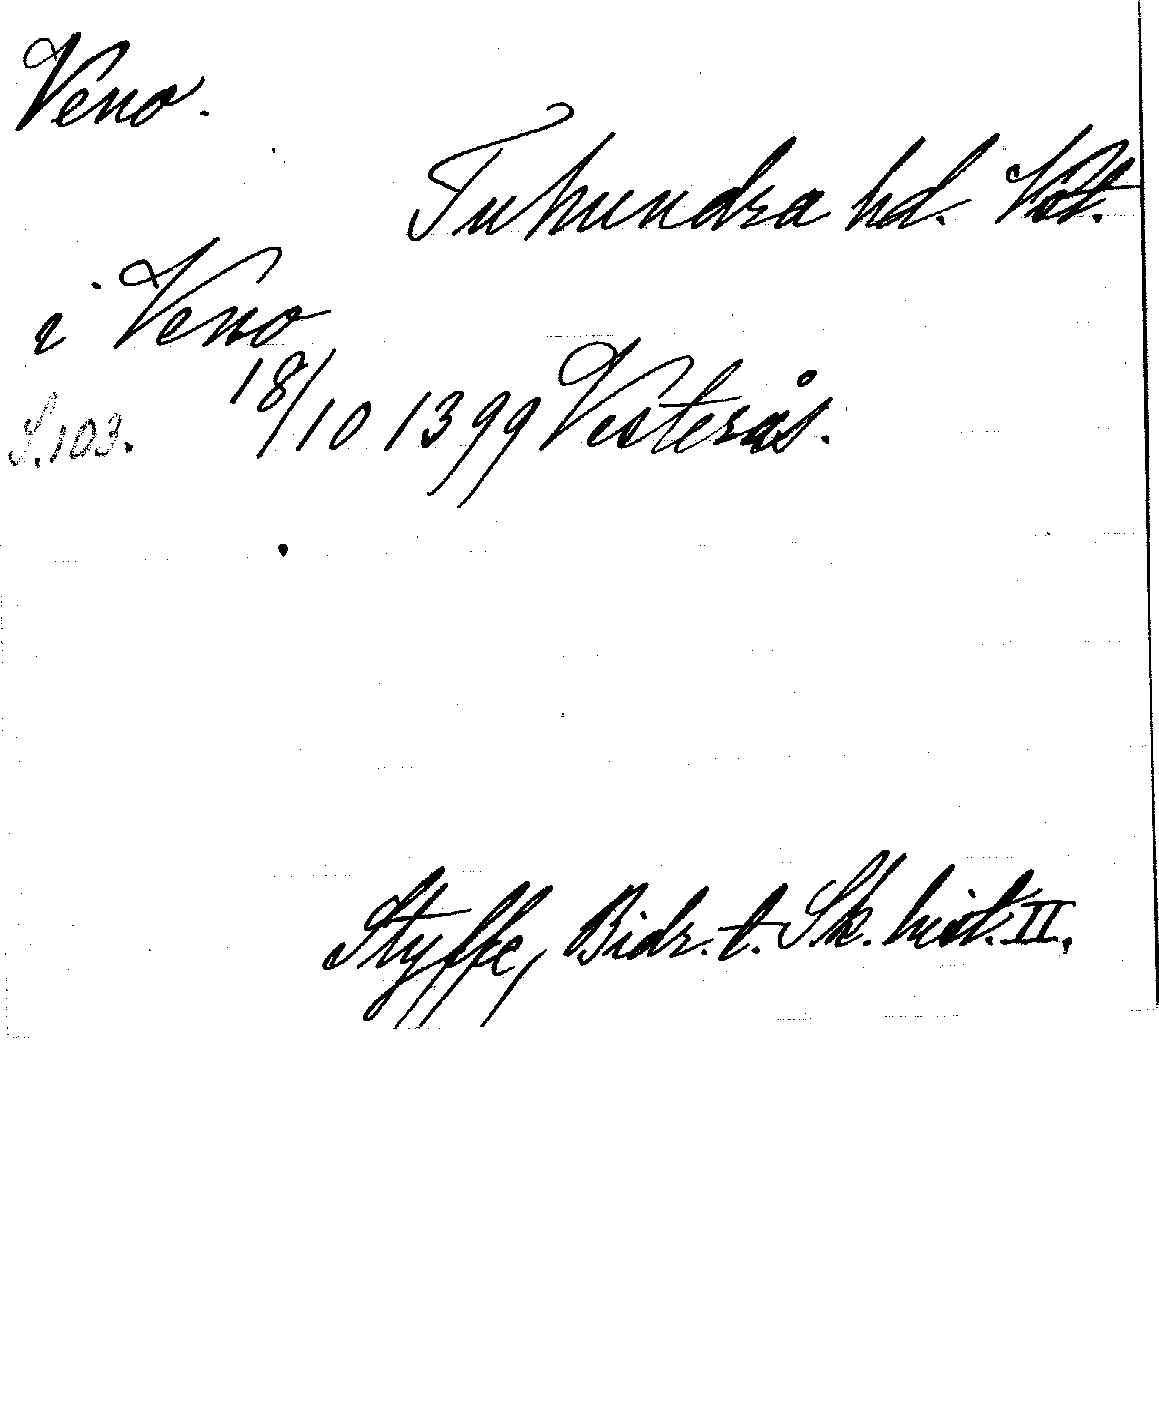 Veno.
Tuhundra hd. Vstl.
i Veno
18/10 1399 Vesterås.
S. 103.
Styffe, Bidr. t. Sk. hist. II.